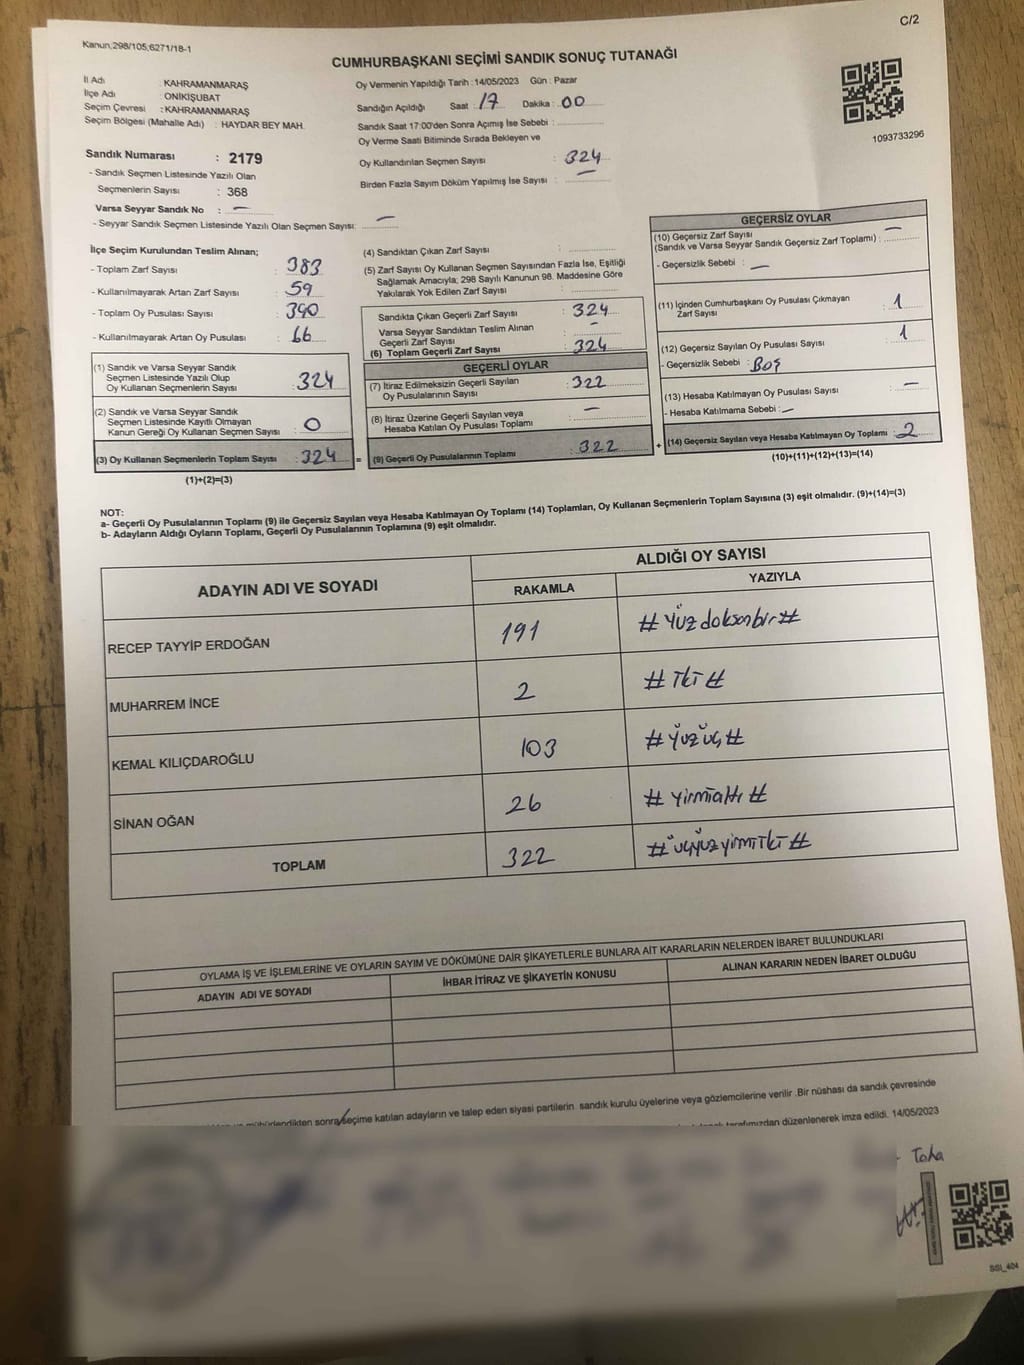 C/2
Kanun;298/105;6271/18-1
CUMHURBAŞKANI SEÇİMİ SANDIK SONUÇ TUTANAĞI
İl Adı : KAHRAMANMARAŞ
İlçe Adı : ONİKİŞUBAT
Seçim Çevresi : KAHRAMANMARAŞ
Seçim Bölgesi (Mahalle Adı) : HAYDAR BEY MAH.
Sandık Numarası : 2179
- Sandık Seçmen Listesinde Yazılı Olan
Seçmenlerin Sayısı : 368
Varsa Seyyar Sandık No : —
- Seyyar Sandık Seçmen Listesinde Yazılı Olan Seçmen Sayısı: —
Oy Vermenin Yapıldığı Tarih : 14/05/2023 Gün : Pazar
Sandığın Açıldığı Saat : 17 Dakika : 00
Sandık Saat 17:00'den Sonra Açımış İse Sebebi :
Oy Verme Saati Bitiminde Sırada Bekleyen ve
Oy Kullandırılan Seçmen Sayısı : 324
Birden Fazla Sayım Döküm Yapılmış İse Sayısı : —
1093733296
İlçe Seçim Kurulundan Teslim Alınan;
- Toplam Zarf Sayısı : 383
- Kullanılmayarak Artan Zarf Sayısı : 59
- Toplam Oy Pusulası Sayısı : 390
- Kullanılmayarak Artan Oy Pusulası : 66
(1) Sandık ve Varsa Seyyar Sandık
Seçmen Listesinde Yazılı Olup
Oy Kullanan Seçmenlerin Sayısı : 324
(2) Sandık ve Varsa Seyyar Sandık
Seçmen Listesinde Kayıtlı Olmayan
Kanun Gereği Oy Kullanan Seçmen Sayısı : 0
(3) Oy Kullanan Seçmenlerin Toplam Sayısı : 324
(1)+(2)=(3)
(4) Sandıktan Çıkan Zarf Sayısı :
(5) Zarf Sayısı Oy Kullanan Seçmen Sayısından Fazla İse, Eşitliği
Sağlamak Amacıyla; 298 Sayılı Kanunun 98. Maddesine Göre
Yakılarak Yok Edilen Zarf Sayısı :
Sandıkta Çıkan Geçerli Zarf Sayısı : 324
Varsa Seyyar Sandıktan Teslim Alınan
Geçerli Zarf Sayısı : —
(6) Toplam Geçerli Zarf Sayısı : 324
GEÇERLİ OYLAR
(7) İtiraz Edilmeksizin Geçerli Sayılan
Oy Pusulalarının Sayısı : 322
(8) İtiraz Üzerine Geçerli Sayılan veya
Hesaba Katılan Oy Pusulası Toplamı : —
= (9) Geçerli Oy Pusulalarının Toplamı : 322
GEÇERSİZ OYLAR
(10) Geçersiz Zarf Sayısı
(Sandık ve Varsa Seyyar Sandık Geçersiz Zarf Toplamı) : —
- Geçersizlik Sebebi : —
(11) İçinden Cumhurbaşkanı Oy Pusulası Çıkmayan
Zarf Sayısı : 1
(12) Geçersiz Sayılan Oy Pusulası Sayısı : 1
- Geçersizlik Sebebi : BOŞ
(13) Hesaba Katılmayan Oy Pusulası Sayısı : —
- Hesaba Katılmama Sebebi : —
+ (14) Geçersiz Sayılan veya Hesaba Katılmayan Oy Toplamı : 2
(10)+(11)+(12)+(13)=(14)
NOT:
a- Geçerli Oy Pusulalarının Toplamı (9) ile Geçersiz Sayılan veya Hesaba Katılmayan Oy Toplamı (14) Toplamları, Oy Kullanan Seçmenlerin Toplam Sayısına (3) eşit olmalıdır. (9)+(14)=(3)
b- Adayların Aldığı Oyların Toplamı, Geçerli Oy Pusulalarının Toplamına (9) eşit olmalıdır.
ADAYIN ADI VE SOYADI ALDIĞI OY SAYISI
RAKAMLA YAZIYLA
RECEP TAYYİP ERDOĞAN 191 # Yüzdoksanbir #
MUHARREM İNCE 2 # iki #
KEMAL KILIÇDAROĞLU 103 # Yüzüç #
SİNAN OĞAN 26 # yirmialtı #
TOPLAM 322 # üçyüzyirmiiki #
OYLAMA İŞ VE İŞLEMLERİNE VE OYLARIN SAYIM VE DÖKÜMÜNE DAİR ŞİKAYETLERLE BUNLARA AİT KARARLARIN NELERDEN İBARET BULUNDUKLARI
ADAYIN ADI VE SOYADI İHBAR İTİRAZ VE ŞİKAYETİN KONUSU ALINAN KARARIN NEDEN İBARET OLDUĞU
mühürlendikten sonra seçime katılan adayların ve talep eden siyasi partilerin sandık kurulu üyelerine veya gözlemcilerine verilir .Bir nüshası da sandık çevresinde
tarafımızdan düzenlenerek imza edildi. 14/05/2023
Taha
SSI_404